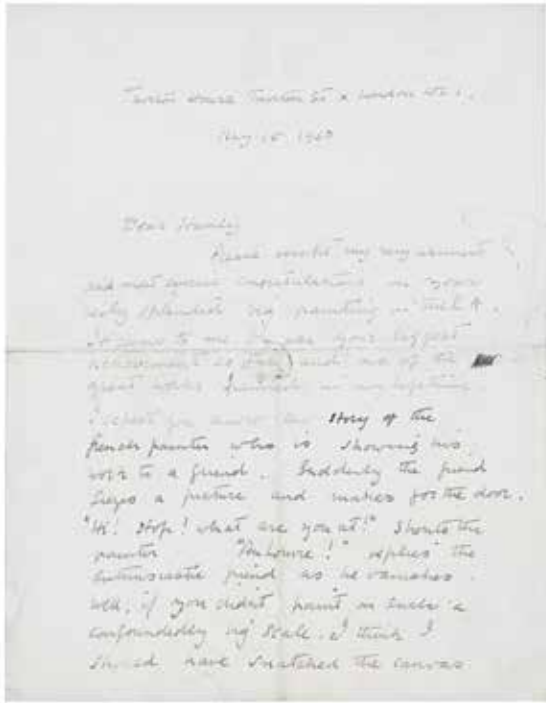 House London
May 15
Dear Stanley
Please my very warmest
and most congratulations on your
very splendid big painting in the R A.
It to me by far your biggest
achievement so and one of the
great works in my lifetime.
I expect you know the story of the
french painter who is showing his
work to a friend. Suddenly the friend
seizes a picture and makes for the door.
"Hi! Stop! what are you at!" shouts the
painter replies the
enthusiastic friend as he vanishes.
Well, if you didn't paint on such a
confoundedly big scale, I think I
should have snatched the canvas